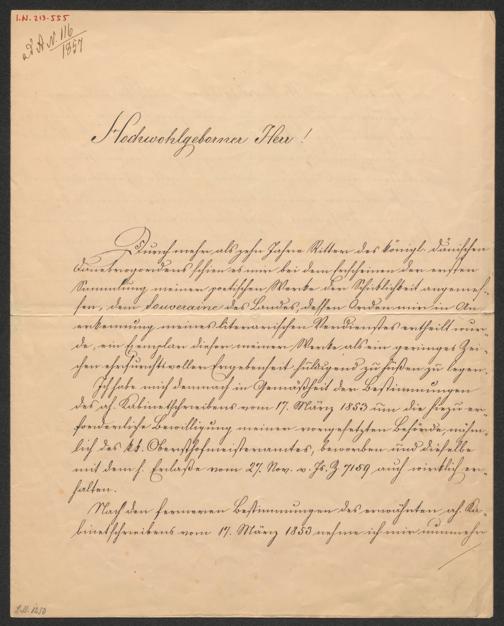 I.N. 213.555
ad A N. 116
1857
Hochwohlgeborner Herr!
Durch mehr als zehn Jahre Ritter des königl. dänischen
Danebrogordens schien es mir bei dem Erscheinen der ersten
Sammlung meiner poetischen Werke der Schicklichkeit angemes-
sen, dem Souveraine des Landes, dessen Orden mir in An-
erkennung meines literarischen Verdienstes ertheilt wur-
de, ein Exemplar dieser meiner Werke als ein geringes Zei-
chen ehrfurchtsvollen Ergebenheit huldigend zu Füßen zu legen.
Ich habe mich demnach in Gemäßheit der Bestimmungen
des ah. Kabinetschreibens vom 17. März 1853 um die hiezu er-
forderliche Bewilligung meiner vorgesetzten Behörde, nähm-
lich des k.k. Obersthofmeisteramtes, beworben und dieselbe
mit dem h. Erlaße vom 27. Nov. v. Js. Z 7159 auch wirklich er-
halten.
Nach den ferneren Bestimmungen des erwähnten ah. Ka-
binetschreibens vom 17. März 1853 nehme ich mir nunmehr